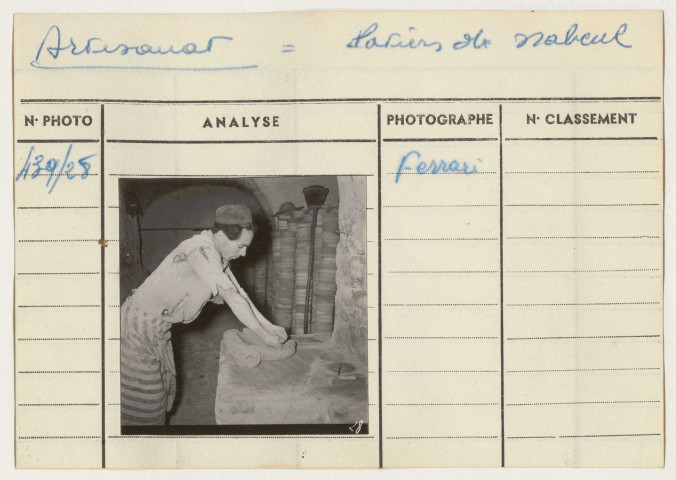 Artisanat = Potiers de Nabeul
N° PHOTO ANALYSE PHOTOGRAPHE N° CLASSEMENT
439/28 Ferrari
28